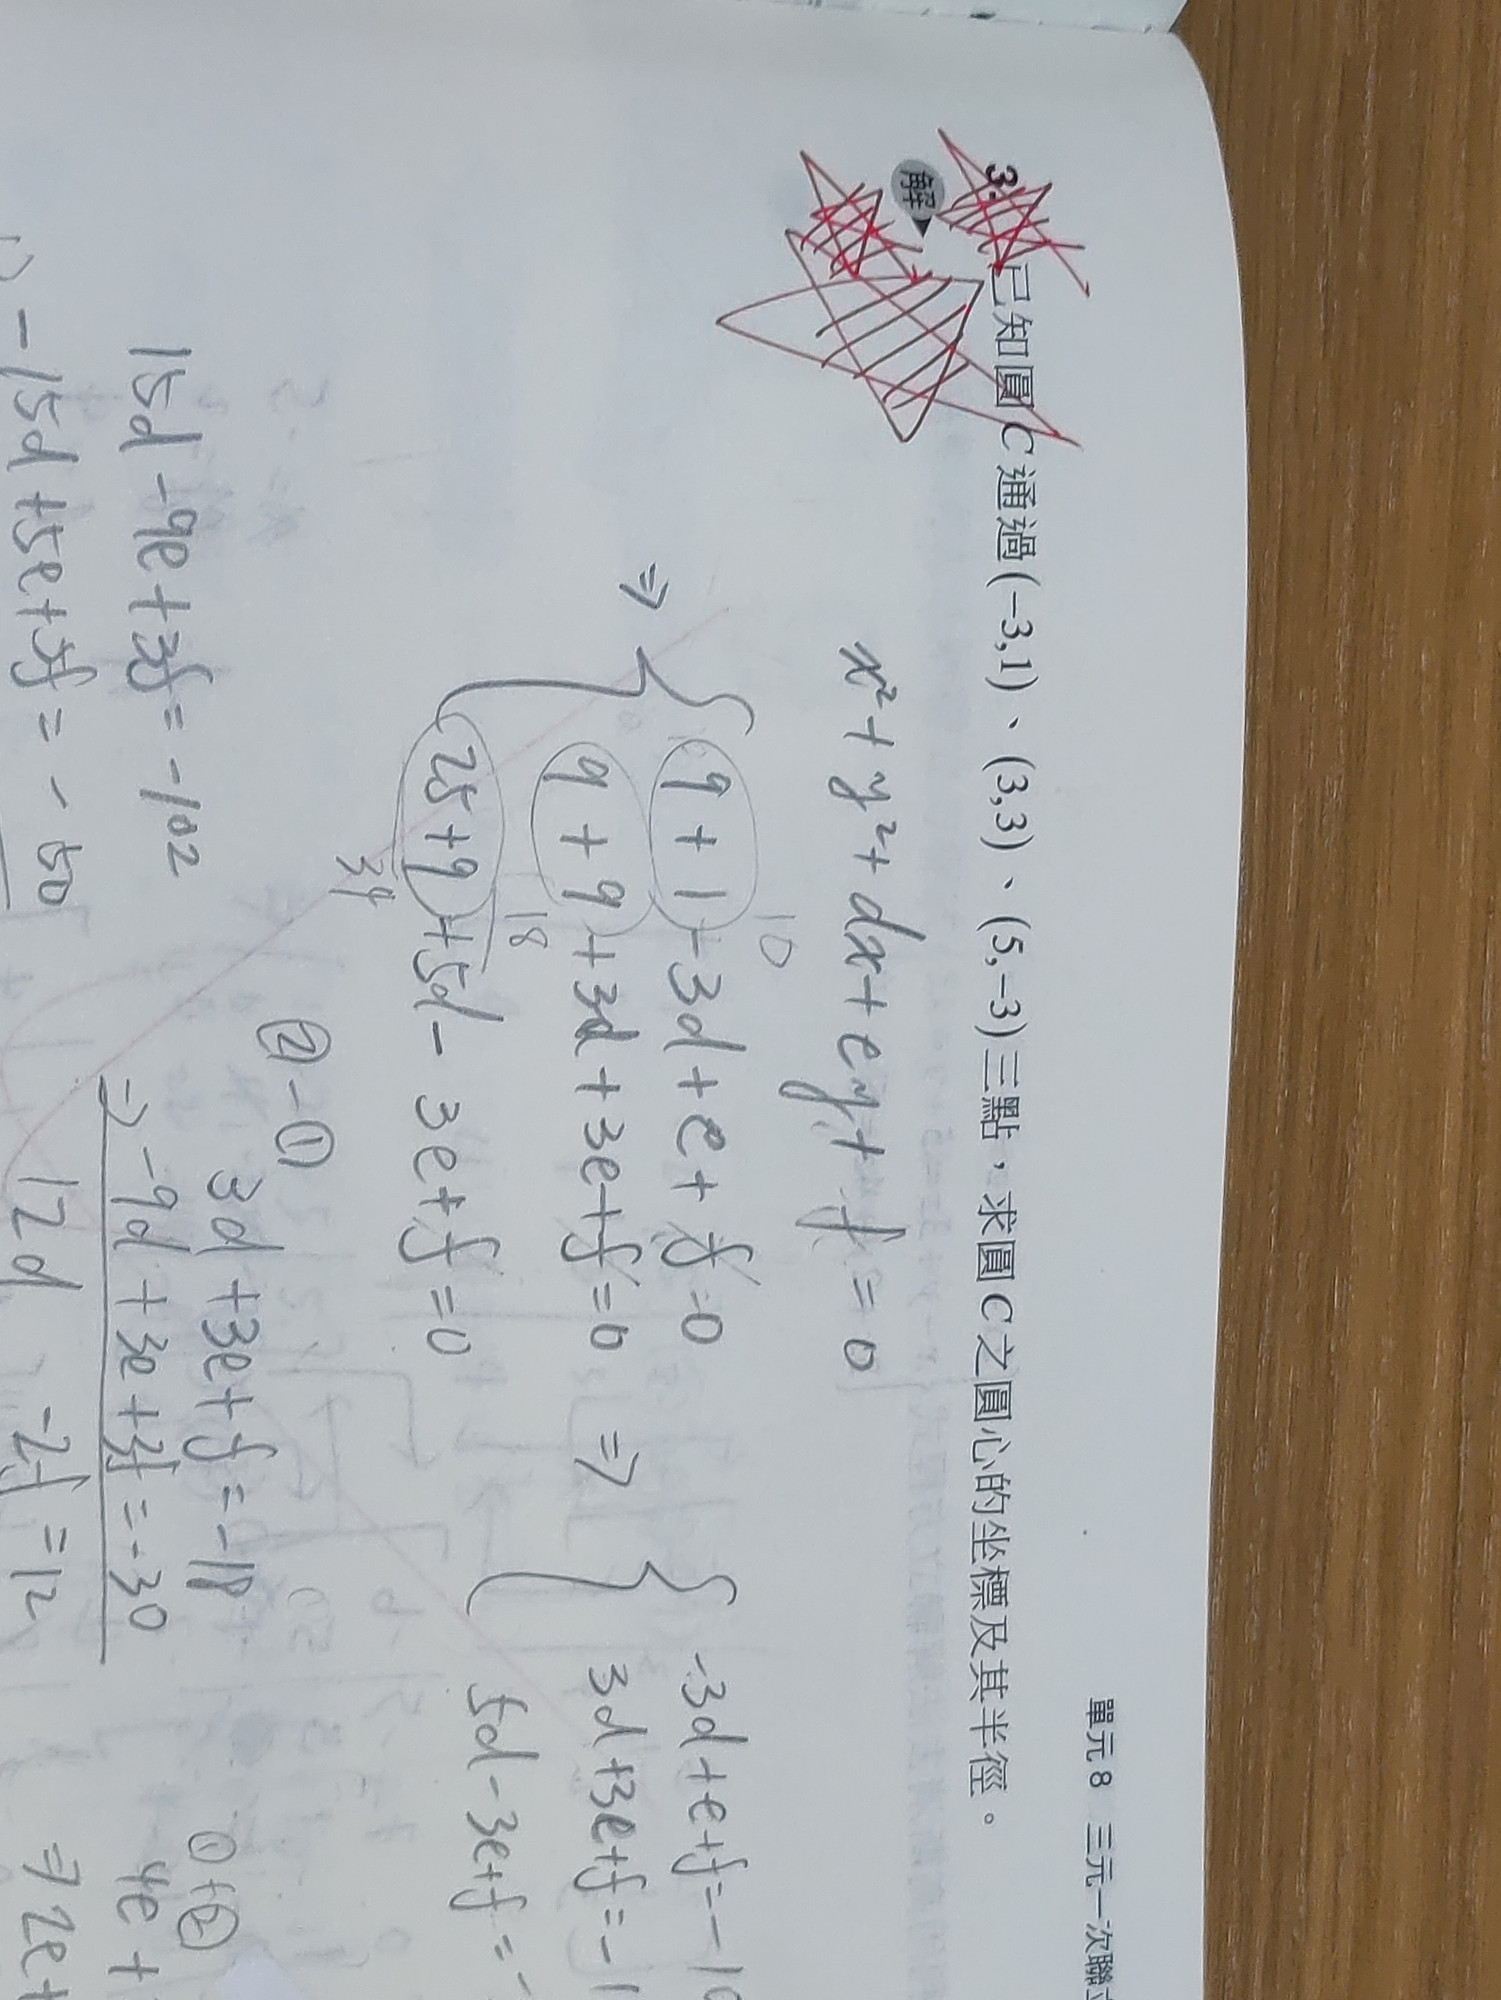 單元 8 三元一次聯立
3. 已知圓C通過(−3,1)、(3,3)、(5,−3)三點，求圓C之圓心的坐標及其半徑。
解
x²+y²+dx+ey+f=0
10
⇒ { 9+1-3d+e+f=0
9+9+3d+3e+f=0
18
25+9+5d-3e+f=0
34
⇒ { -3d+e+f=-10
3d+3e+f=-1
5d-3e+f=-
②-①
3d+3e+f=-18
⇒ -9d+3e+3f=-30
12d -2f=12
15d-9e+3f=-102
-15d+5e+5f=-50
①+②
4e+
⇒ 2e+